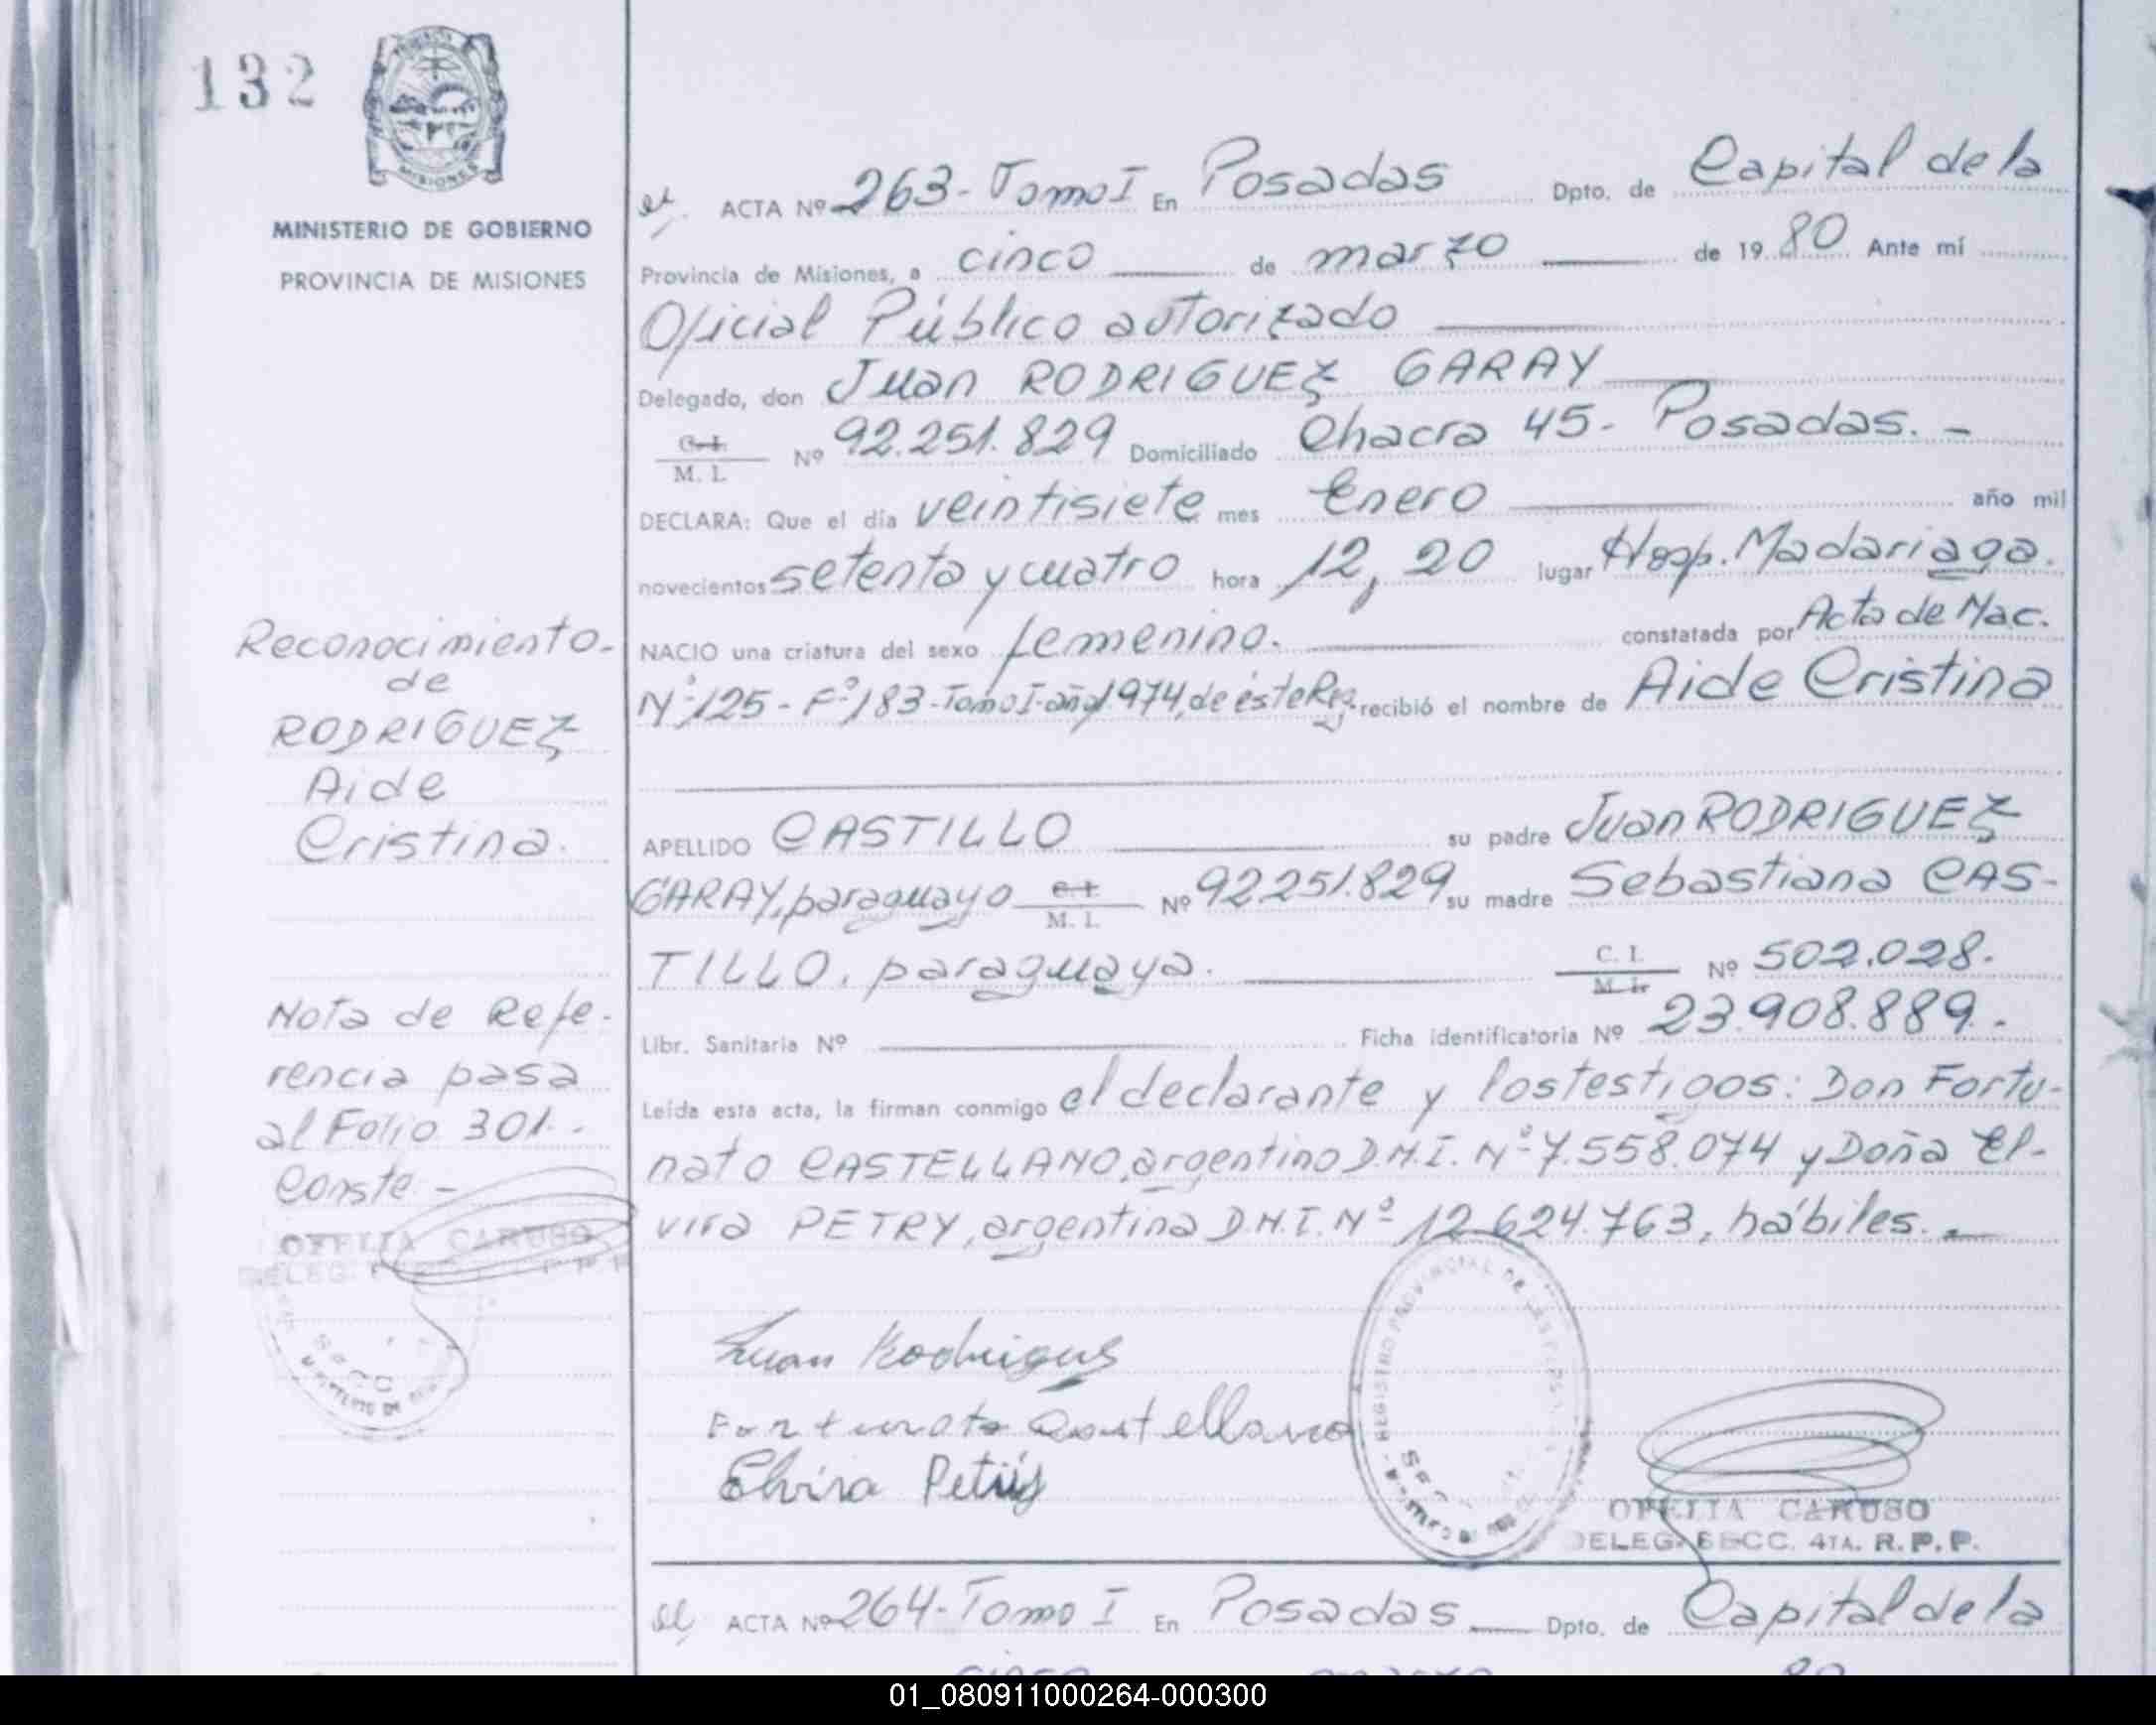 132
MISIONES
MINISTERIO DE GOBIERNO
PROVINCIA DE MISIONES
ACTA Nº 263-Tomo I En Posadas Dpto. de Capital de la
Provincia de Misiones, a cinco de marzo de 1980 Ante mí
Oficial Público autorizado
Delegado, don Juan RODRIGUEZ GARAY
C.I.
M. I. Nº 92.251.829 Domiciliado Chacra 45- Posadas. -
DECLARA: Que el día veintisiete mes Enero año mil
novecientos setenta y cuatro hora 12,20 lugar Hosp. Madariaga.
NACIO una criatura del sexo femenino. constatada por Acta de Nac.
Nº 125 - Fº 183-Tomo I-año 1974, de éste Reg. recibió el nombre de Aide Cristina
APELLIDO CASTILLO su padre Juan RODRIGUEZ
GARAY, paraguayo C.I.
M. I. Nº 92.251.829 su madre Sebastiana CAS-
TILLO, paraguaya. C. I.
M. I. Nº 502.028.
Libr. Sanitaria Nº Ficha identificatoria Nº 23.908.889.-
Leída esta acta, la firman conmigo el declarante y los testigos: Don Fortu-
nato CASTELLANO, argentino D.N.I. Nº 7.558.074 y Doña El-
vira PETRY, argentina D.N.I. Nº 12.624.763, hábiles.
Reconocimiento-
de
RODRIGUEZ
Aide
Cristina.
Nota de Refe-
rencia pasa
al Folio 301.-
Conste -
OFELIA CARUSO
Juan Rodrigues
Fortunato Castellano
Elvira Petry
OFELIA CARUSO
DELEG. SECC. 4TA. R.P.P.
ACTA Nº 264-Tomo I En Posadas Dpto. de Capital de la
01_080911000264-000300